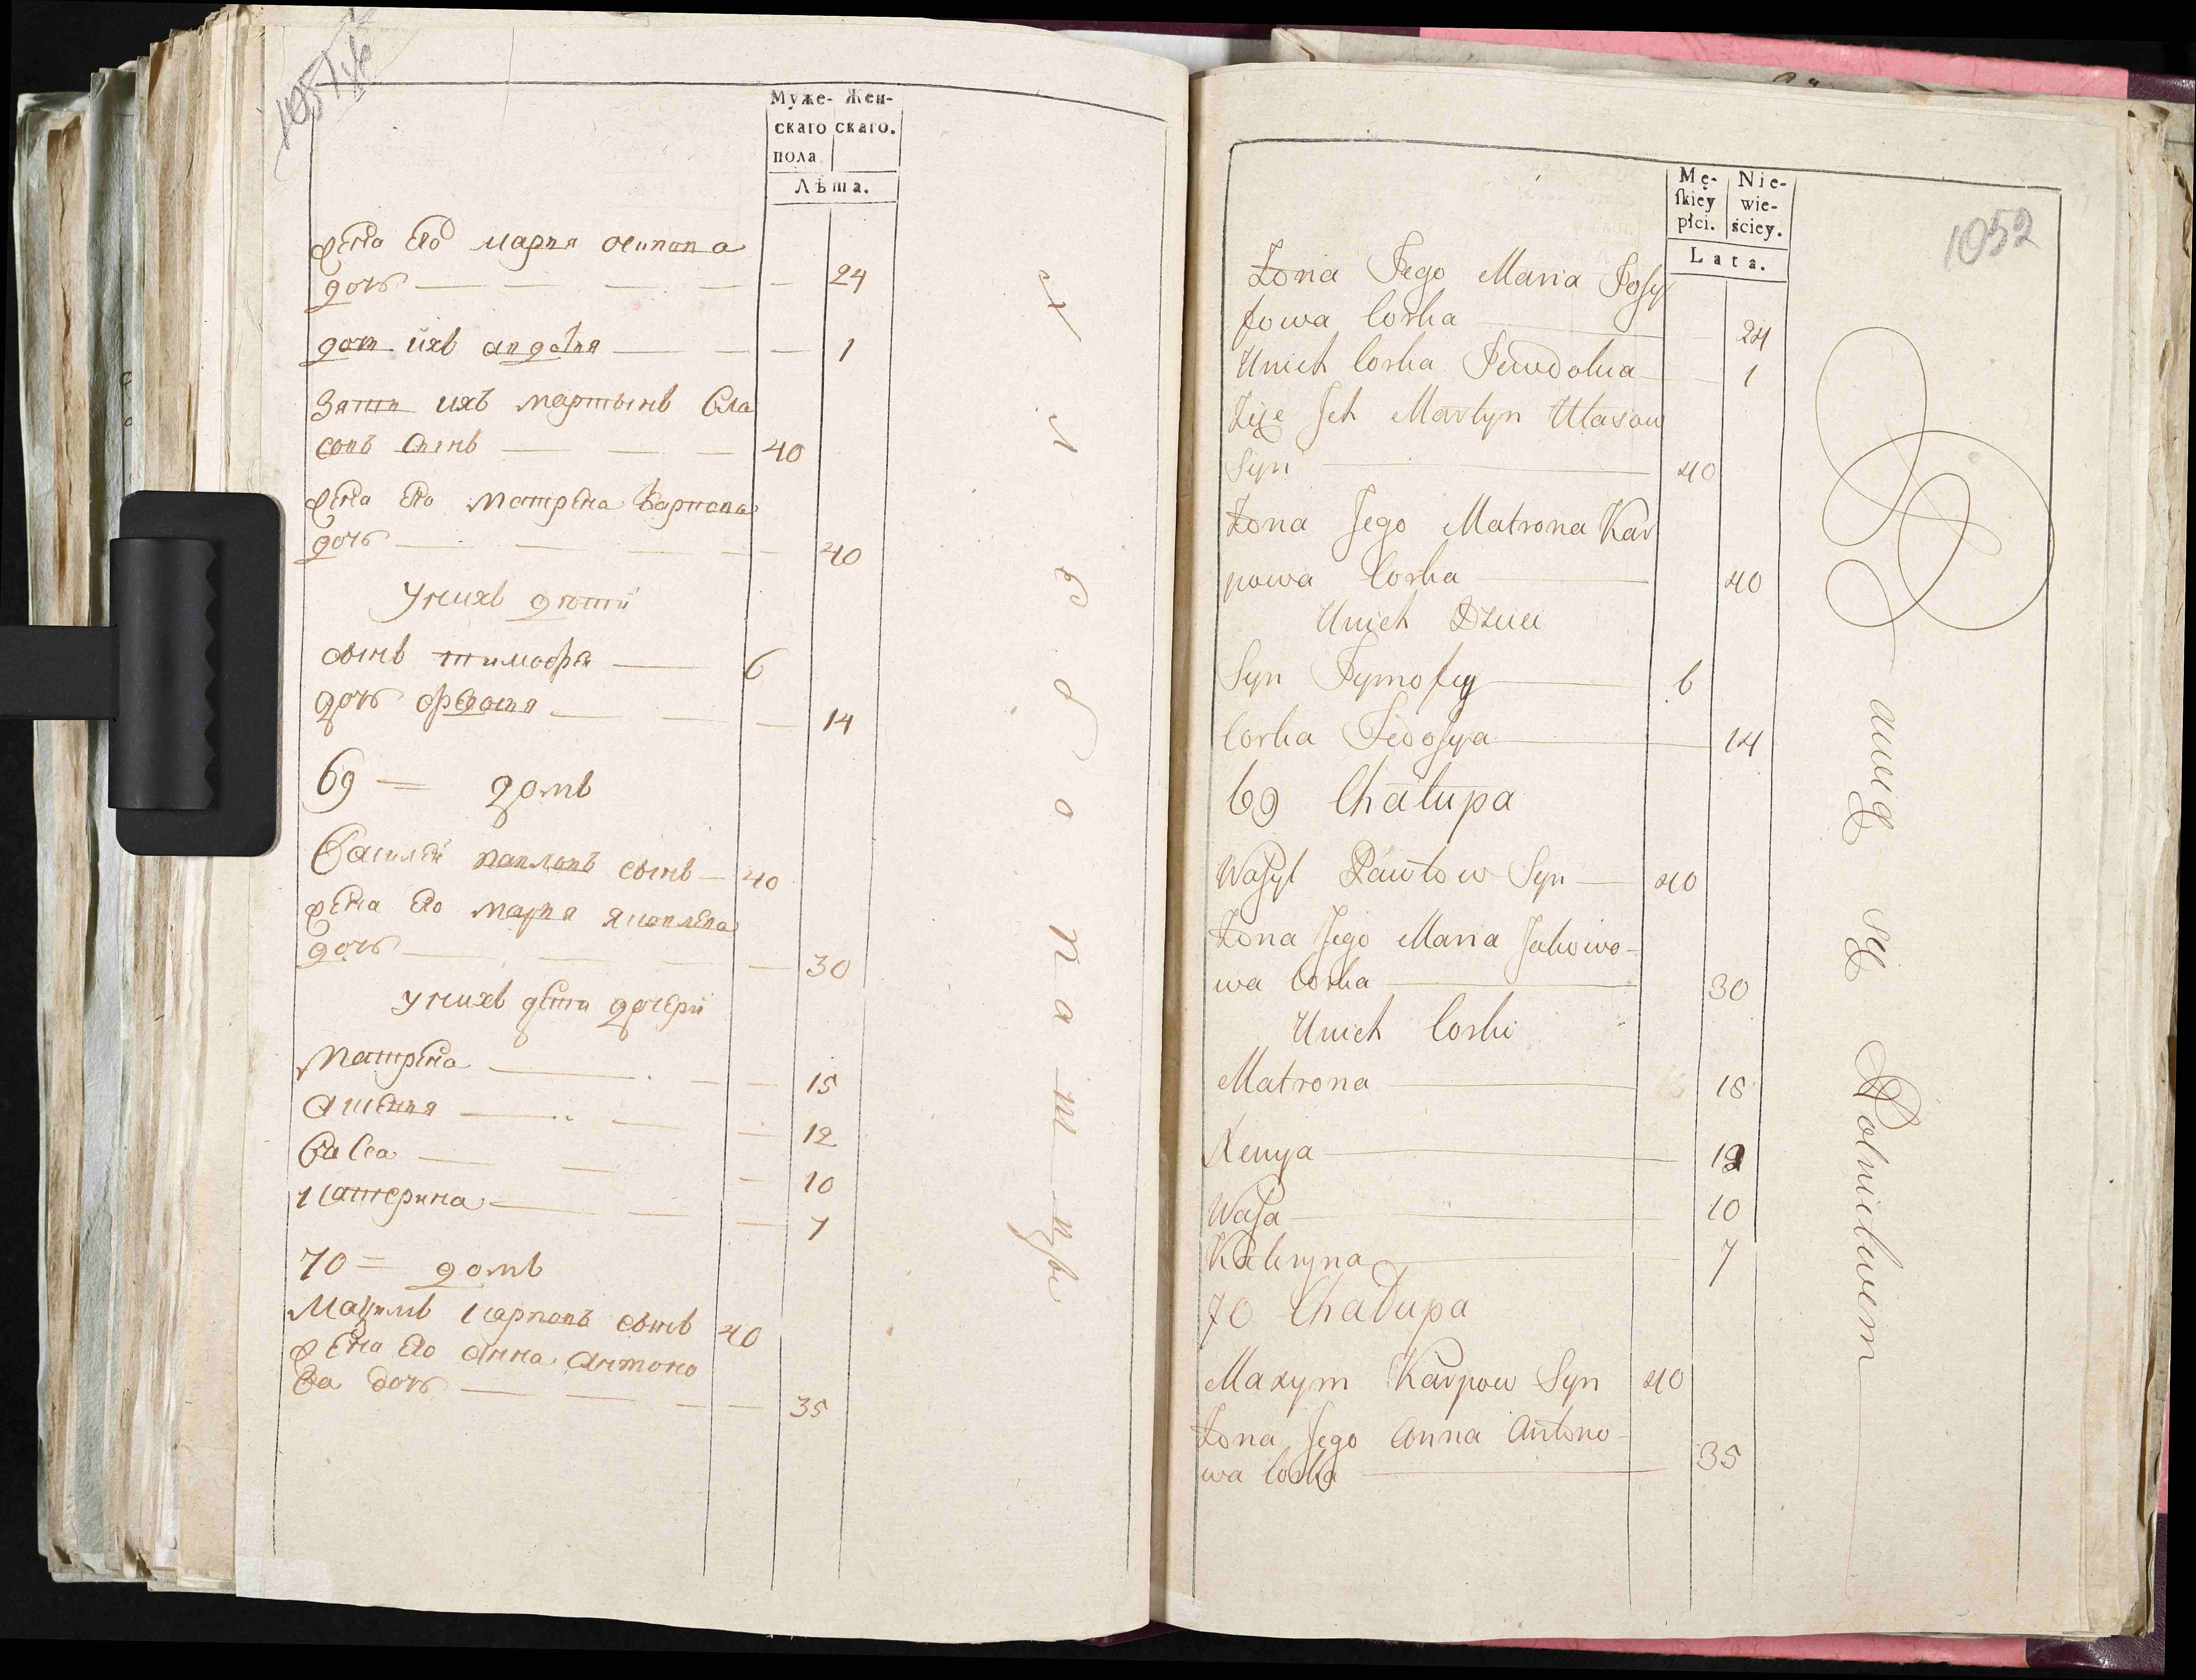 1051 об
Муже- Жен-
скаго скаго.
пола
Лѣта.
жена его марья осипова
дочь — — — — — 24
дочь ихъ авдотья — — — 1
Зять ихъ мартынъ Вла
совъ сынъ — — — 40
жена его матрена Карпова
дочь — — — — 40
У нихъ дѣти
сынъ тимофей — 6
дочь федосья — — — 14
69 = домъ
Василей павловъ сынъ — 40
жена его марья яковлева
дочь — — — — 30
у нихъ дети дочери
Матрена — — — 15
Аксенья — — — 12
Васса — — — 10
Катерина — — — 7
70 = домъ
Мацимъ карповъ сынъ 40
жена его анна антоно
ва дочь — — — — 35
хлебопа
1052
Mę- Nie-
ſkiey wie-
płci. ściey.
Lata.
Żona Jego Maria Josy
fowa Corka — 24
Unich Corka Jewdokia — 1
Zięc Jch Martyn Ułasow
Syn — 40
Żona Jego Matrona Kar
powa Corka — 40
Unich Dzieci
Syn Tymofey — 6
Corka Fedosya — 14
69 Chałupa
Wasyl Pawłow Syn — 40
Żona Jego Maria Jakowo-
wa Corka — 30
Unich Corki
Matrona — 15
Xenya — 12
Wasa — 10
Kateryna — 7
70 Chałupa
Maxym Karpow Syn 40
Żona Jego Anna Antono-
wa Corka — 35
się Rolnictwem